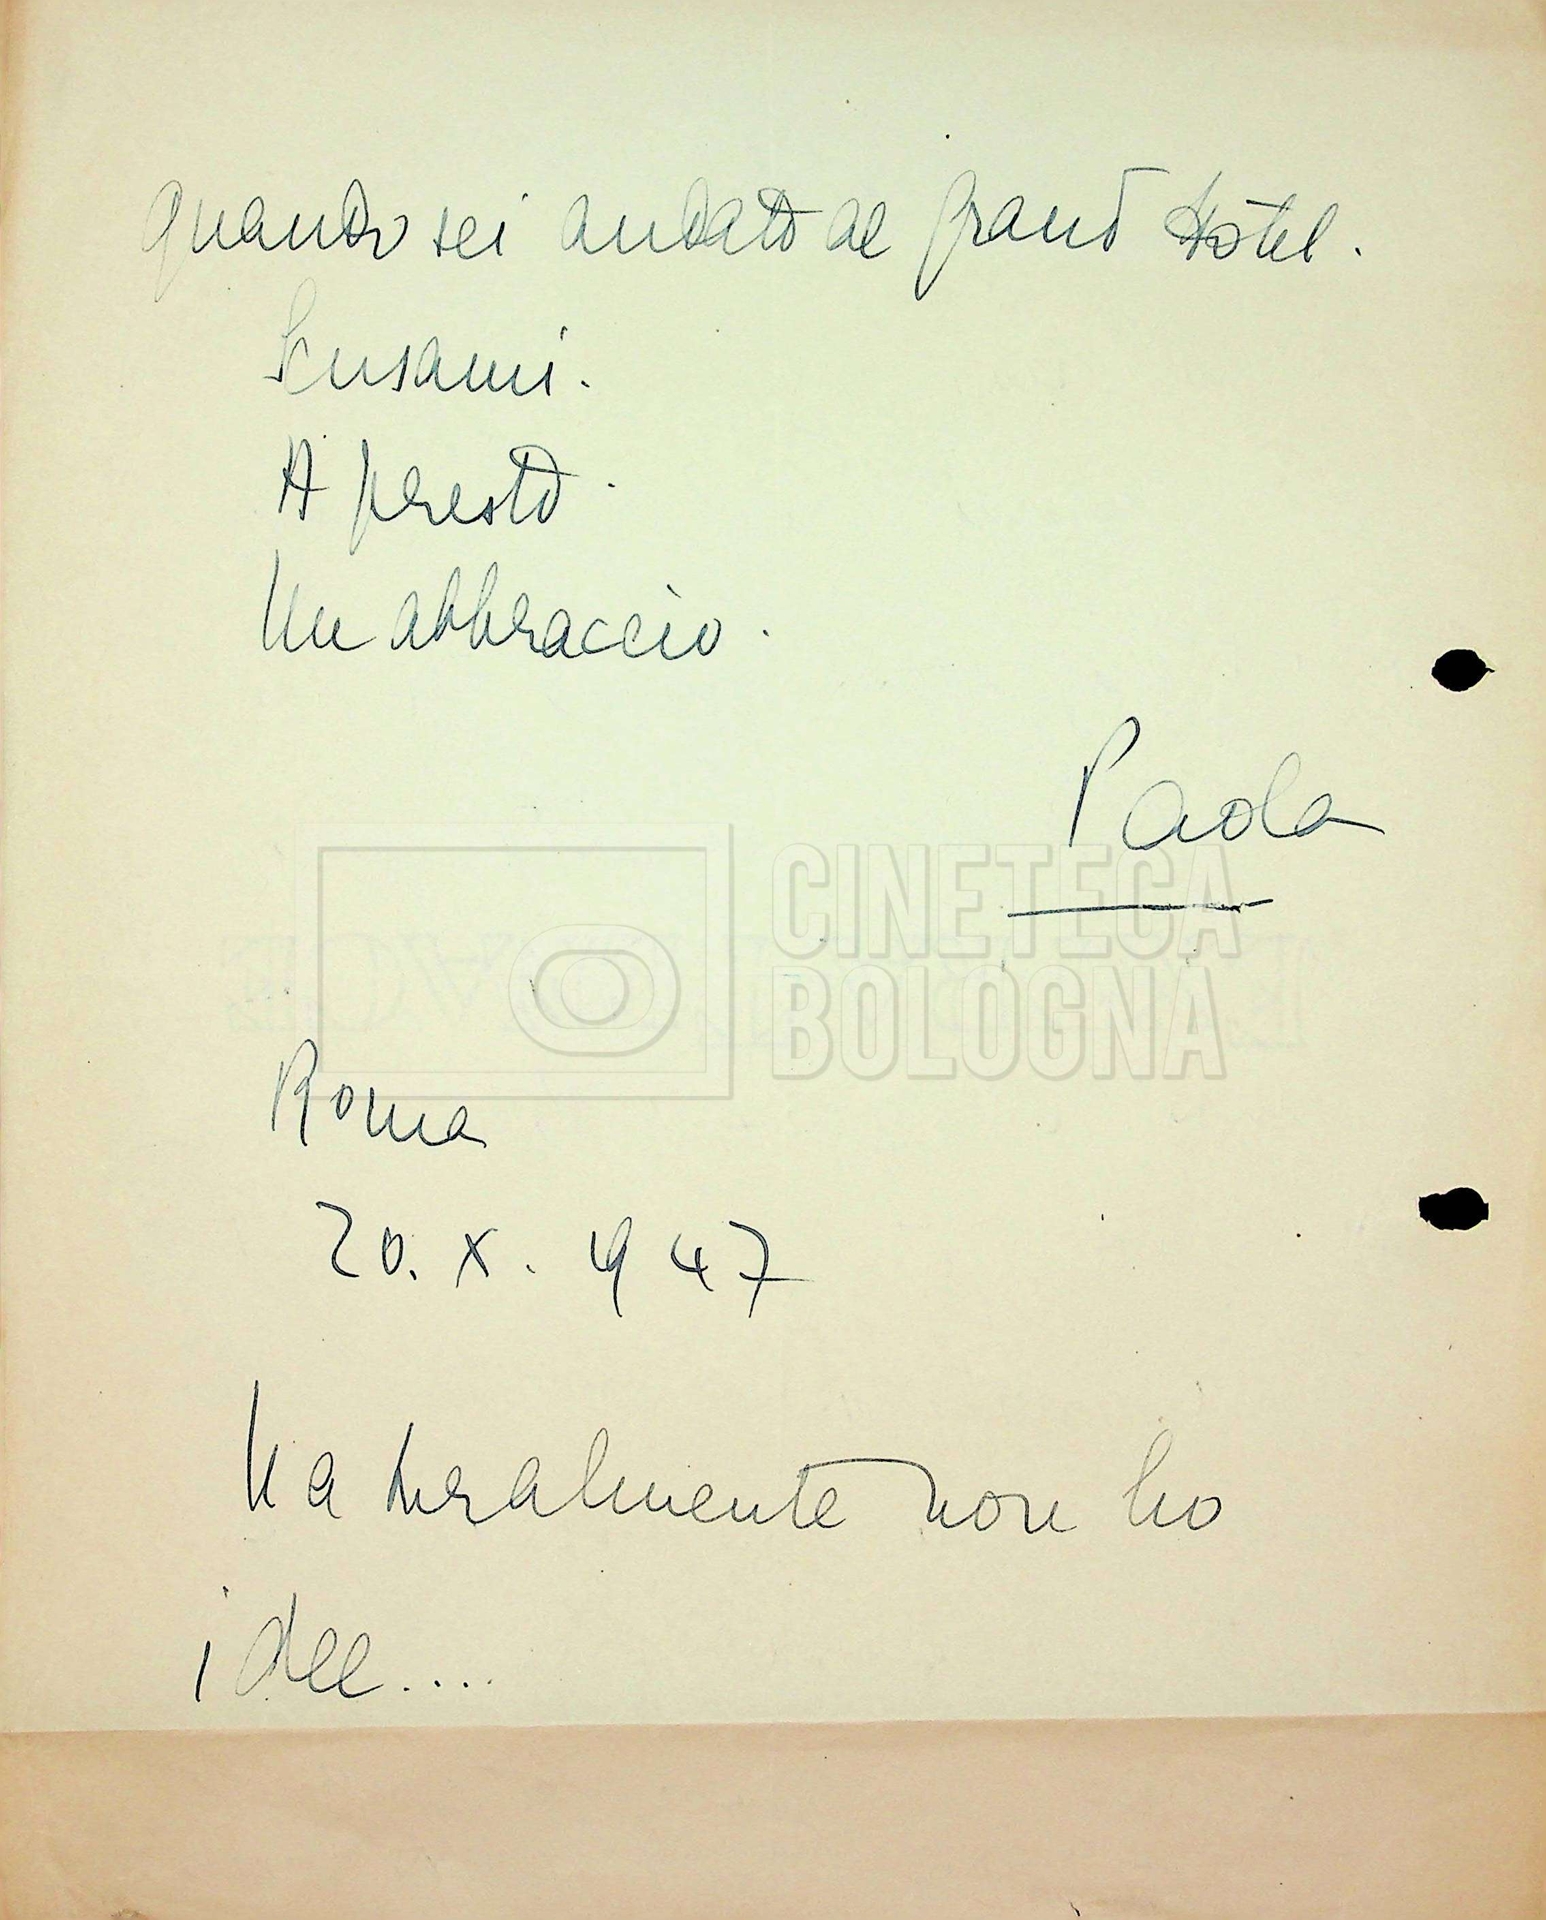 quando sei andato al grand Hôtel.
Scusami.
A presto.
Un abbraccio.
Paola
CINETECA
BOLOGNA
Roma
20. X. 1947
Naturalmente non ho
idee....